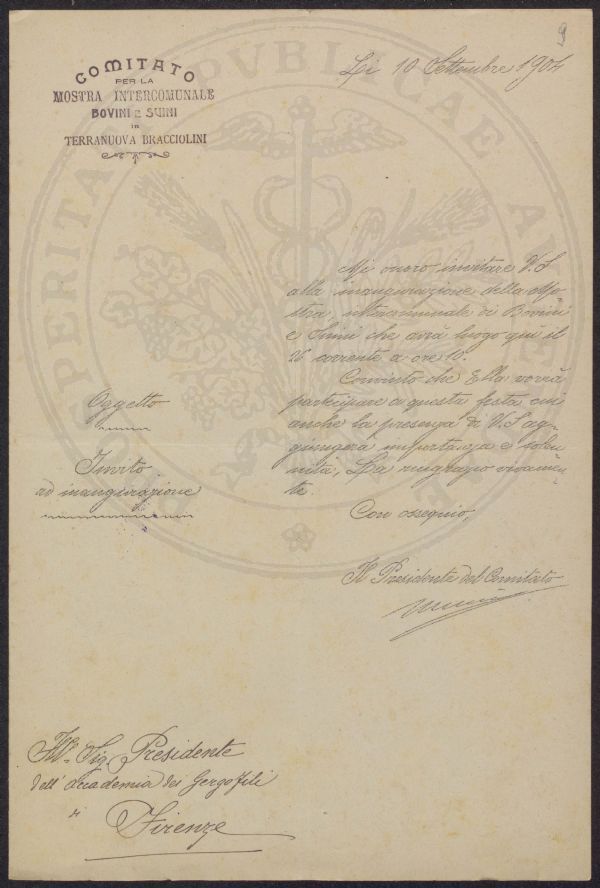 9
COMITATO
PER LA
MOSTRA INTERCOMUNALE
BOVINI E SUINI
IN
TERRANUOVA BRACCIOLINI
Li 10 Settembre 1904
Mi onoro invitare V.S
alla inaugurazione della Mo-
stra intercomunale di Bovini
e Suini che avrà luogo quì il
corrente a ore 10.
Convinto che Ella vorrà
partecipare a questa festa cui
anche la presenza di V.S ag-
giungerà importanza e solen-
nità, La ringrazio vivamen-
te.
Con ossequio,
Il Presidente del Comitato
Oggetto
Invito
ad inaugurazione
Ill. Sig. Presidente
dell'Accademia dei Gergofili
di
Firenze
PROSPERITATI PUBLICAE AUGENDAE